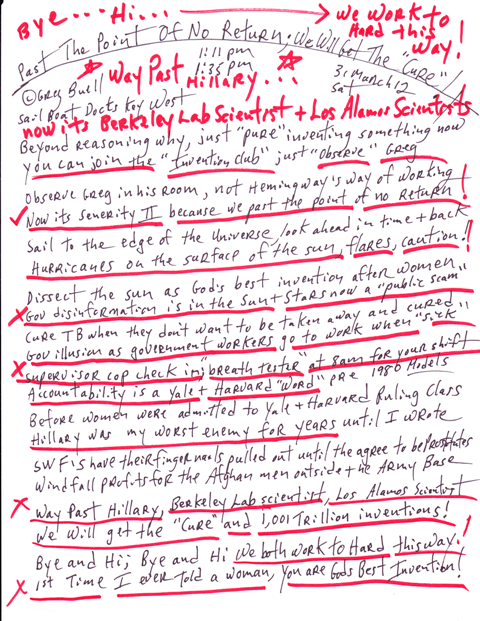 Bye... Hi... → We Work to
Hard this
Way!
Past The Point Of No Return. We Will Get The "Cure"
1:11 pm
1:35 pm
Way Past
Hillary...
31 March 12
Sat
©Greg Buell
Sail Boat Docks Key West
now its Berkeley Lab Scientist + Los Alamos Scientists
Beyond reasoning why, just "pure" inventing something now
you can join the "Invention Club" just "Observe" Greg
Observe Greg in his room, not Hemingway's way of working
Now its Senerity II because we past the point of no Return!
Sail to the edge of the Universe, look ahead in time + back
Hurricanes on the surface of the sun, flares, caution!!
Dissect the sun as God's best invention after women
Gov disinformation is in the Sun + Stars now a "public scam"
Cure TB when they don't want to be taken away and cured"
Gov illusion as government workers go to work when "sick"
Supervisor cop check in; "breath tester" at 8am for your shift
Accountability is a Yale + Harvard "Word" pre 1980 Models
Before women were admitted to Yale + Harvard Ruling Class
Hillary was my worst enemy for years until I wrote
SWF's have their finger nails pulled out until the agree to be Prostitutes
Windfall profits for the Afghan men outside the Army Base
Way Past Hillary, Berkeley Lab scientist, Los Alamos Scientist
We Will get the "Cure" and 1,001 Trillion inventions!
Bye and Hi; Bye and Hi We both work to Hard this way!
1st Time I ever Told a woman, you are Gods Best Invention!